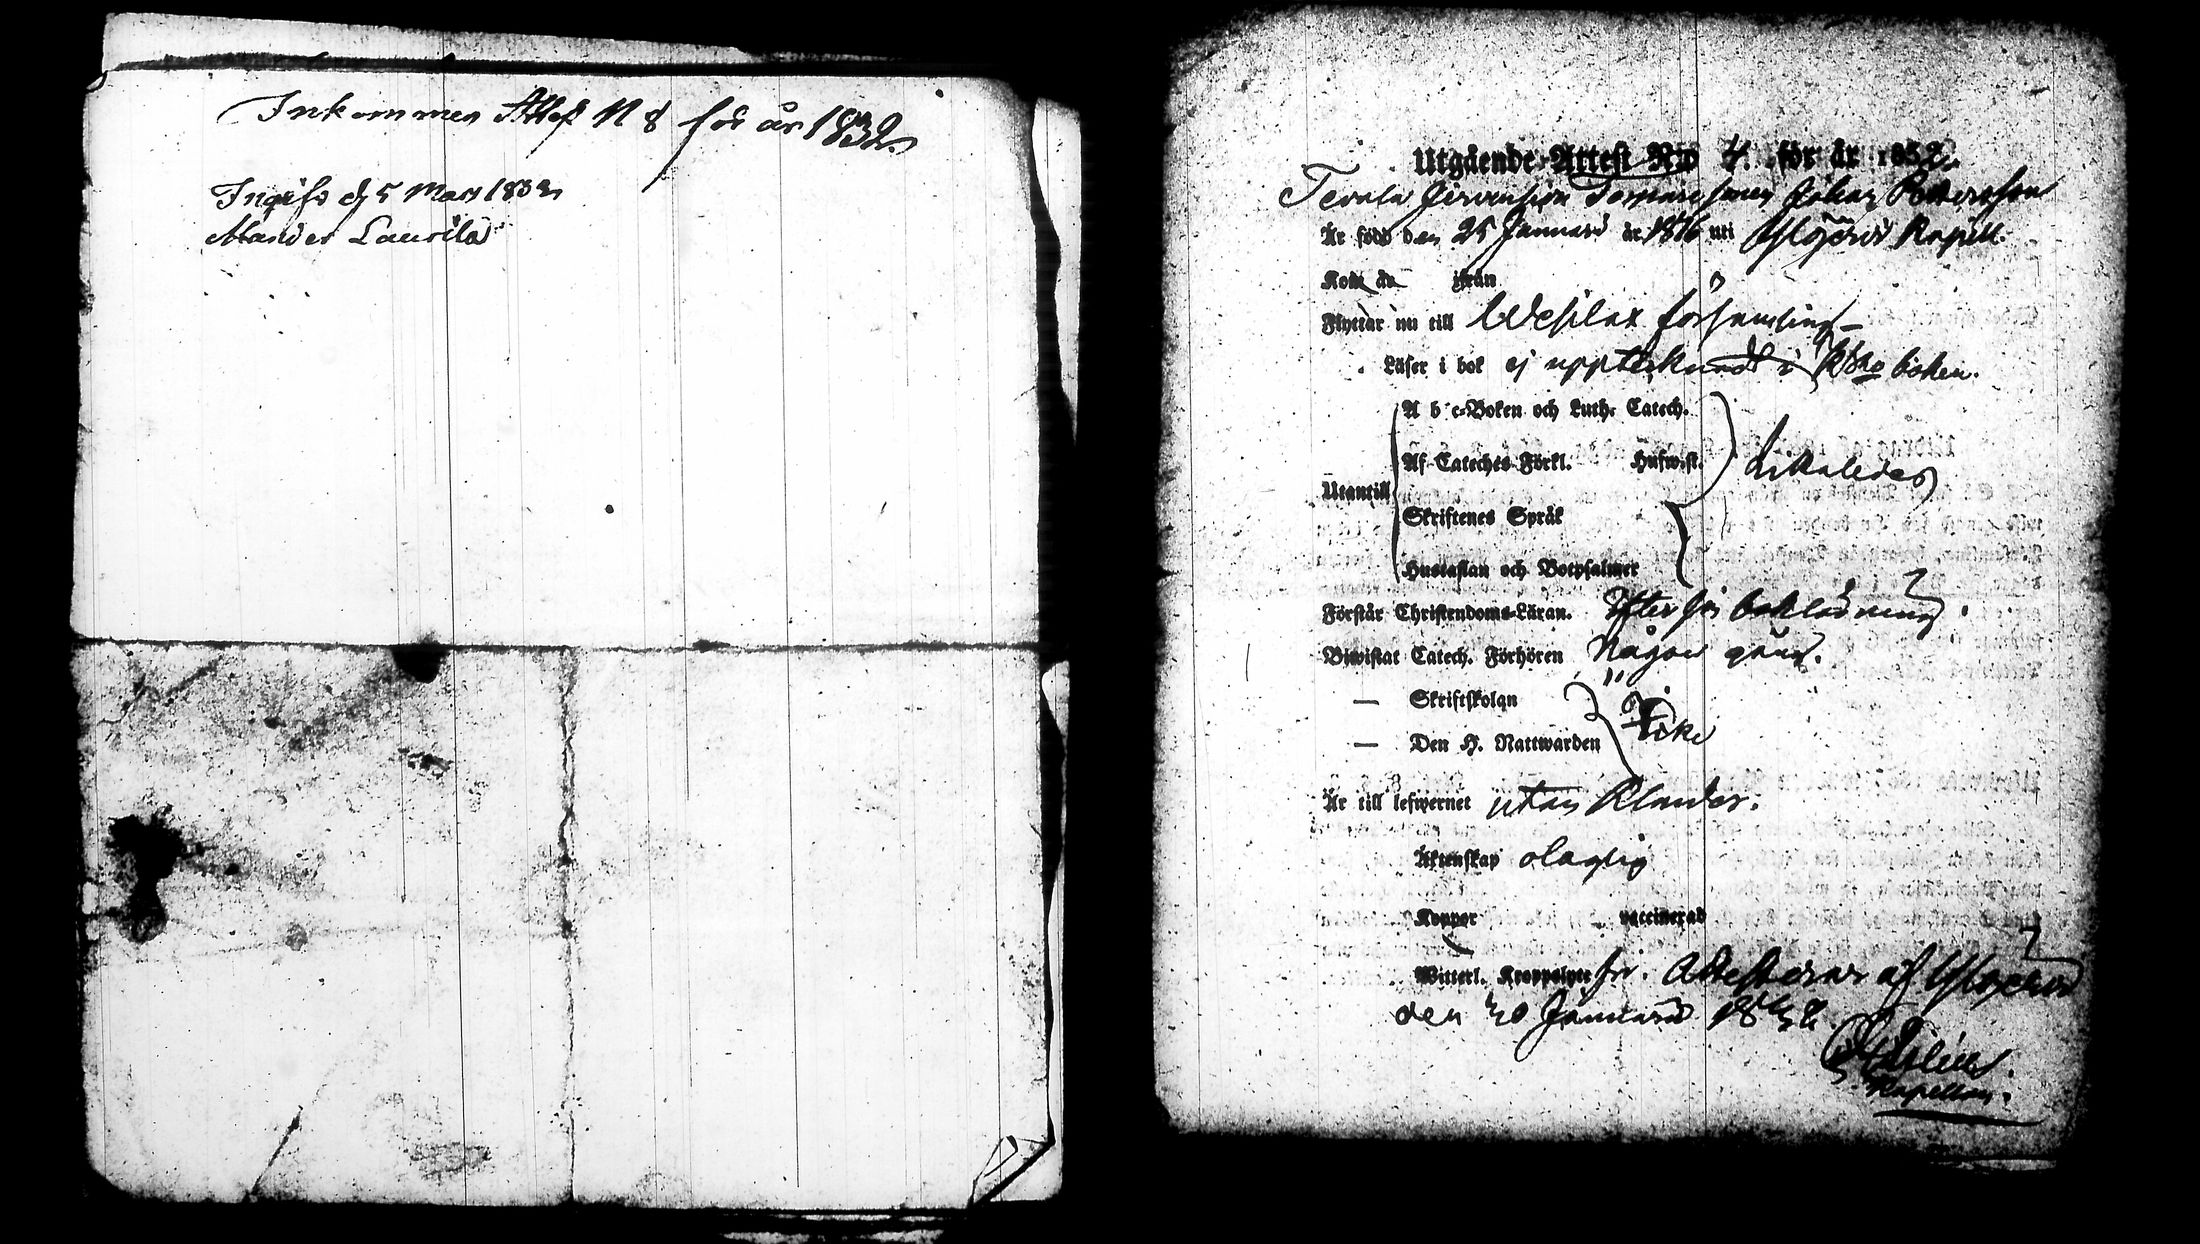 Inkommen Attest N 8 för år 1832.
Ingifs d 5 Mars 1832
Mander Laurila
Utgående-Attest N:o 4. för år 1832.
Johan
Är född den 25 Januarii år 1816 uti Kapell.
Kom år ifrån
Flyttar nu till församling
Läser i bok ej upptecknadt i boken.
A b c-Boken och Luth. Catech.
Af Cateches Förkl. Hufwist.
likaledes
Utantill
Skriftenes Språk
Hustaflan och Botpsalmer
Förstår Christendoms-Läran. Efter sin bokläsning.
Biwistat Catech. Förhören Någon gång.
— Skriftskolan
— Den H. Nattwarden Icke
Är till lefwernet utan klander.
Äktenskap olaglig
Koppor vaccinerad
Witterl. Kroppslyte fri. Attesterar af
den 30 Januarii 1832.
Kapellan.